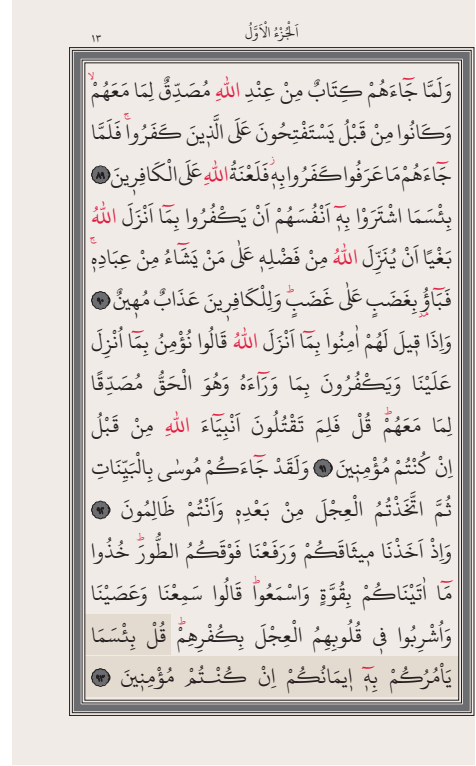 اَلْجُزْءُ الْاَوَّلُ
١٣
وَلَمَّا جَٓاءَهُمْ كِتَابٌ مِنْ عِنْدِ اللّٰهِ مُصَدِّقٌ لِمَا مَعَهُمْۙ
وَكَانُوا مِنْ قَبْلُ يَسْتَفْتِحُونَ عَلَى الَّذٖينَ كَفَرُواۚ فَلَمَّا
جَٓاءَهُمْ مَا عَرَفُوا كَفَرُوا بِهٖؗ فَلَعْنَةُ اللّٰهِ عَلَى الْكَافِرٖينَ ﴿٨٩﴾
بِئْسَمَا اشْتَرَوْا بِهٖٓ اَنْفُسَهُمْ اَنْ يَكْفُرُوا بِمَٓا اَنْزَلَ اللّٰهُ
بَغْيًا اَنْ يُنَزِّلَ اللّٰهُ مِنْ فَضْلِهٖ عَلٰى مَنْ يَشَٓاءُ مِنْ عِبَادِهٖۚ
فَبَٓاؤُ۫ بِغَضَبٍ عَلٰى غَضَبٍؕ وَلِلْكَافِرٖينَ عَذَابٌ مُهٖينٌ ﴿٩٠﴾
وَاِذَا قٖيلَ لَهُمْ اٰمِنُوا بِمَٓا اَنْزَلَ اللّٰهُ قَالُوا نُؤْمِنُ بِمَٓا اُنْزِلَ
عَلَيْنَا وَيَكْفُرُونَ بِمَا وَرَٓاءَهُ وَهُوَ الْحَقُّ مُصَدِّقًا
لِمَا مَعَهُمْؕ قُلْ فَلِمَ تَقْتُلُونَ اَنْبِيَٓاءَ اللّٰهِ مِنْ قَبْلُ
اِنْ كُنْتُمْ مُؤْمِنٖينَ ﴿٩١﴾ وَلَقَدْ جَٓاءَكُمْ مُوسٰى بِالْبَيِّنَاتِ
ثُمَّ اتَّخَذْتُمُ الْعِجْلَ مِنْ بَعْدِهٖ وَاَنْتُمْ ظَالِمُونَ ﴿٩٢﴾
وَاِذْ اَخَذْنَا مٖيثَاقَكُمْ وَرَفَعْنَا فَوْقَكُمُ الطُّورَؕ خُذُوا
مَٓا اٰتَيْنَاكُمْ بِقُوَّةٍ وَاسْمَعُواؕ قَالُوا سَمِعْنَا وَعَصَيْنَا
وَاُشْرِبُوا فٖي قُلُوبِهِمُ الْعِجْلَ بِكُفْرِهِمْؕ قُلْ بِئْسَمَا
يَاْمُرُكُمْ بِهٖٓ اٖيمَانُكُمْ اِنْ كُنْتُمْ مُؤْمِنٖينَ ﴿٩٣﴾